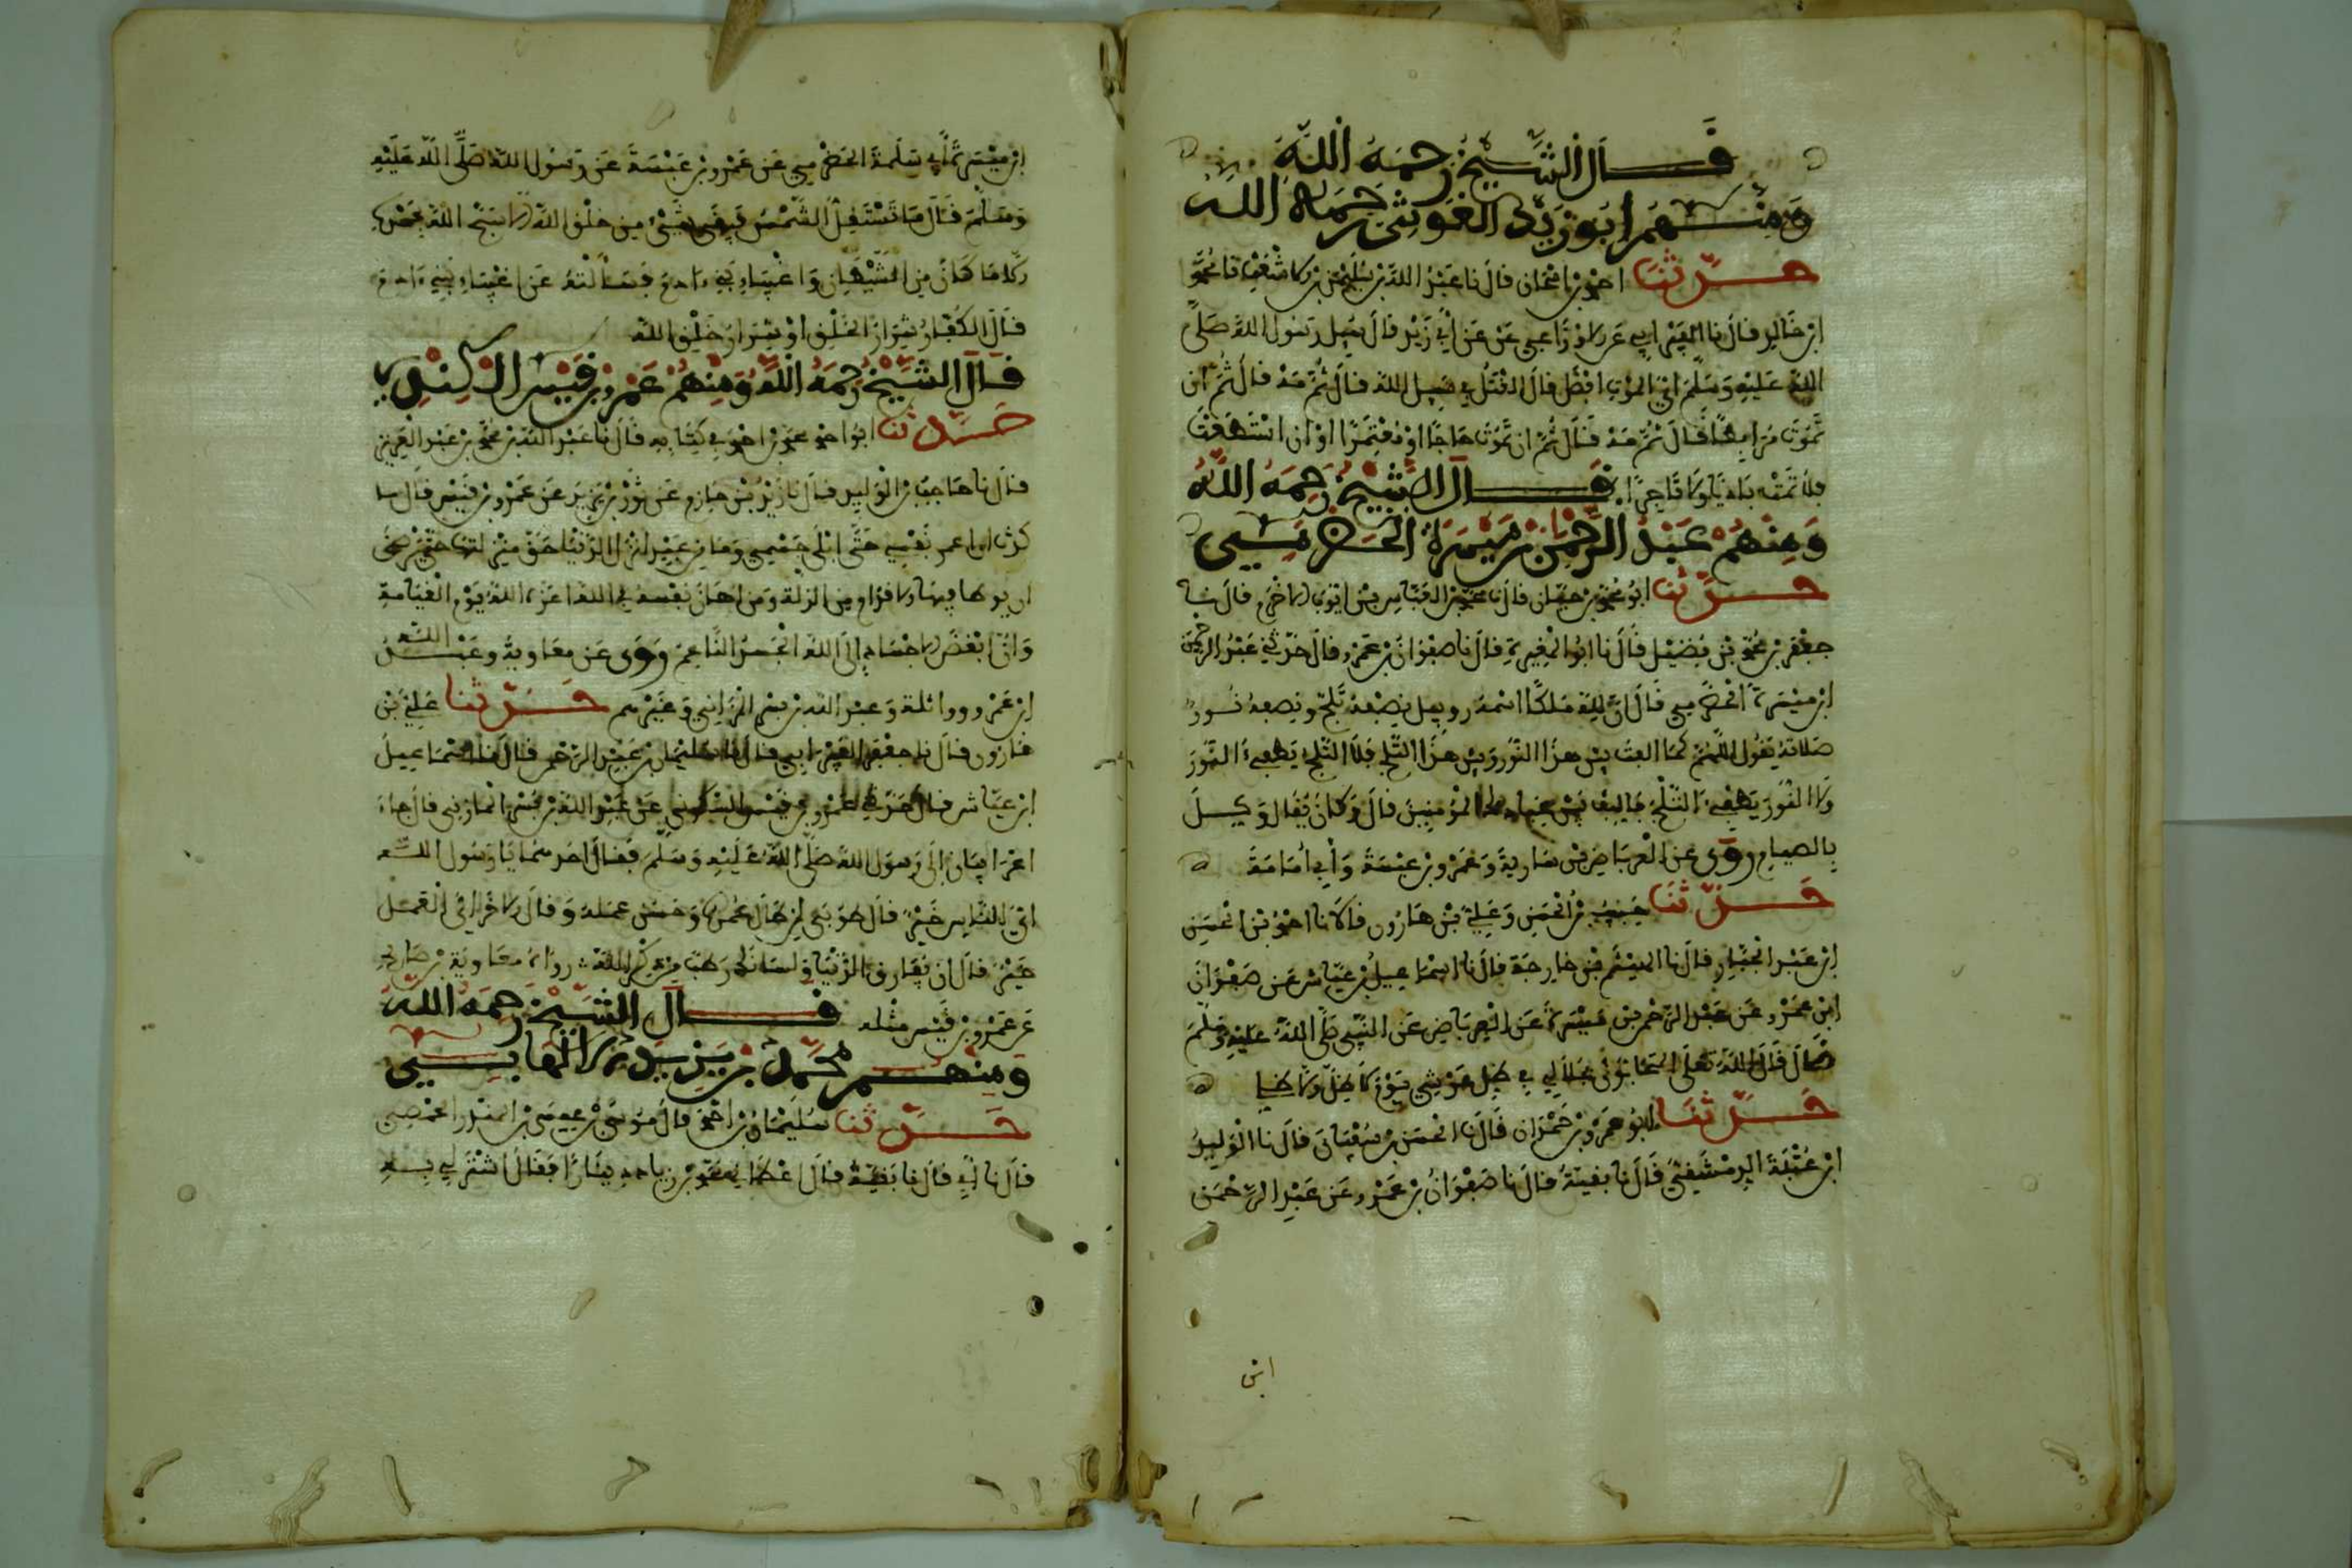 قال الشيخ رحمه الله
ومنهم ابو زيد الغوثي رحمه الله
حدثنا احمد بن اسحان قال نا عبد الله بن سليمن بن الاشعث نا محمود
ابن خالد قال نا الفيرابي عن الاوزاعي عن ابي زيد قال سيل رسول الله صلى
الله عليه وسلم اي الموت افضل قال القتل في سبيل الله قال ثم مه قال ثم ان
تموت مرابطا قال ثم مه قال ثم ان تموت حاجا او معتمرا او ان استطعت
فلا تمت باديا ولا تاجرا قال الشيخ رحمه الله
ومنهم عبد الرحمن بن ميسرة الحضرمي
حدثنا ابو محمد بن حيان قال نا محمد بن العباس بن ايوب الاخرم قال نا
جعفر بن محمد بن فضيل قال نا ابو المغيرة قال نا صفوان بن عمرو قال حدثني عبد الرحمن
ابن ميسرة الحضرمي قال ان لله ملكا اسمه روبيل نصفه ثلج ونصفه نور
صلاته يقول اللهم كما الفت بين هذا النور وبين هذا الثلج فلا الثلج يطفيء النور
ولا النور يطفيء الثلج فاليف بين عبادك المؤمنين قال وكان يقال وكيل
بالصيام روى عن العرباض بن سارية وعمرو بن عبسة وابي امامة
حدثنا حبيب بن الحسن وعلي بن هارون قالا نا احمد بن الحسن
ابن عبد الجبار قال نا الهيثم بن خارجة قال نا اسماعيل بن عياش عن صفوان
ابن عمرو عن عبد الرحمن بن ميسرة عن العرباض عن النبي صلى الله عليه وسلم
قال قال الله تعلى المتحابون بجلالي في ظل عرشي يوم لا ظل الا ظلي
حدثنا ابو عمرو بن حمدان قال نا الحسن بن سفيان قال نا الوليد
ابن عتبة الدمشقي قال نا بقية قال نا صفوان بن عمرو عن عبد الرحمن
ابن
ابن ميسرة ابي سلمة الحضرمي عن عمرو بن عبسة عن رسول الله صلى الله عليه
وسلم قال ما تستقل الشمس فيبقى شيء من خلق الله الا سبح الله بحمده
الا ما كان من الشيطان واغبياء بني ادم فسالته عن اغبياء بني ادم
قال الكفار شرار الخلق او شرار خلق الله
قال الشيخ رحمه الله ومنهم عمرو بن قيس الكندي
حدثنا ابو احمد محمد بن احمد في كتابه قال نا عبد الله بن محمد بن عبد العزيز
قال نا حاجب بن الوليد قال نا زيد بن حازم عن ثور بن يزيد عن عمرو بن قيس قال
وان ابغض الاجساد الى الله الجسد الناعم روى عن معاوية وعبد الله
ابن عمرو وواثلة وعبد الله بن بسر المازني وغيرهم حدثنا علي بن
هارون قال نا جعفر الفيرابي قال نا سليمان بن عبد الرحمن قال نا اسماعيل
ابن عياش قال حدثني عمرو بن قيس السكوني عن عبد الله بن بسر المازني قال جاء
اعرابيان الى رسول الله صلى الله عليه وسلم فقال احدهما يا رسول الله
اي الناس خير قال طوبى لمن طال عمره وحسن عمله وقال الاخر اي العمل
خير قال ان تفارق الدنيا ولسانك رطب من ذكر الله رواه معاوية بن صالح
عن عمرو بن قيس مثله قال الشيخ رحمه الله
ومنهم محمد بن يزيد
حدثنا سليمان بن احمد قال موسى بن عيسى بن المنذر الحمصي
قال نا ابي قال نا بقية قال اعطاني محمد بن زياد دينارا فقال اشتر لي به